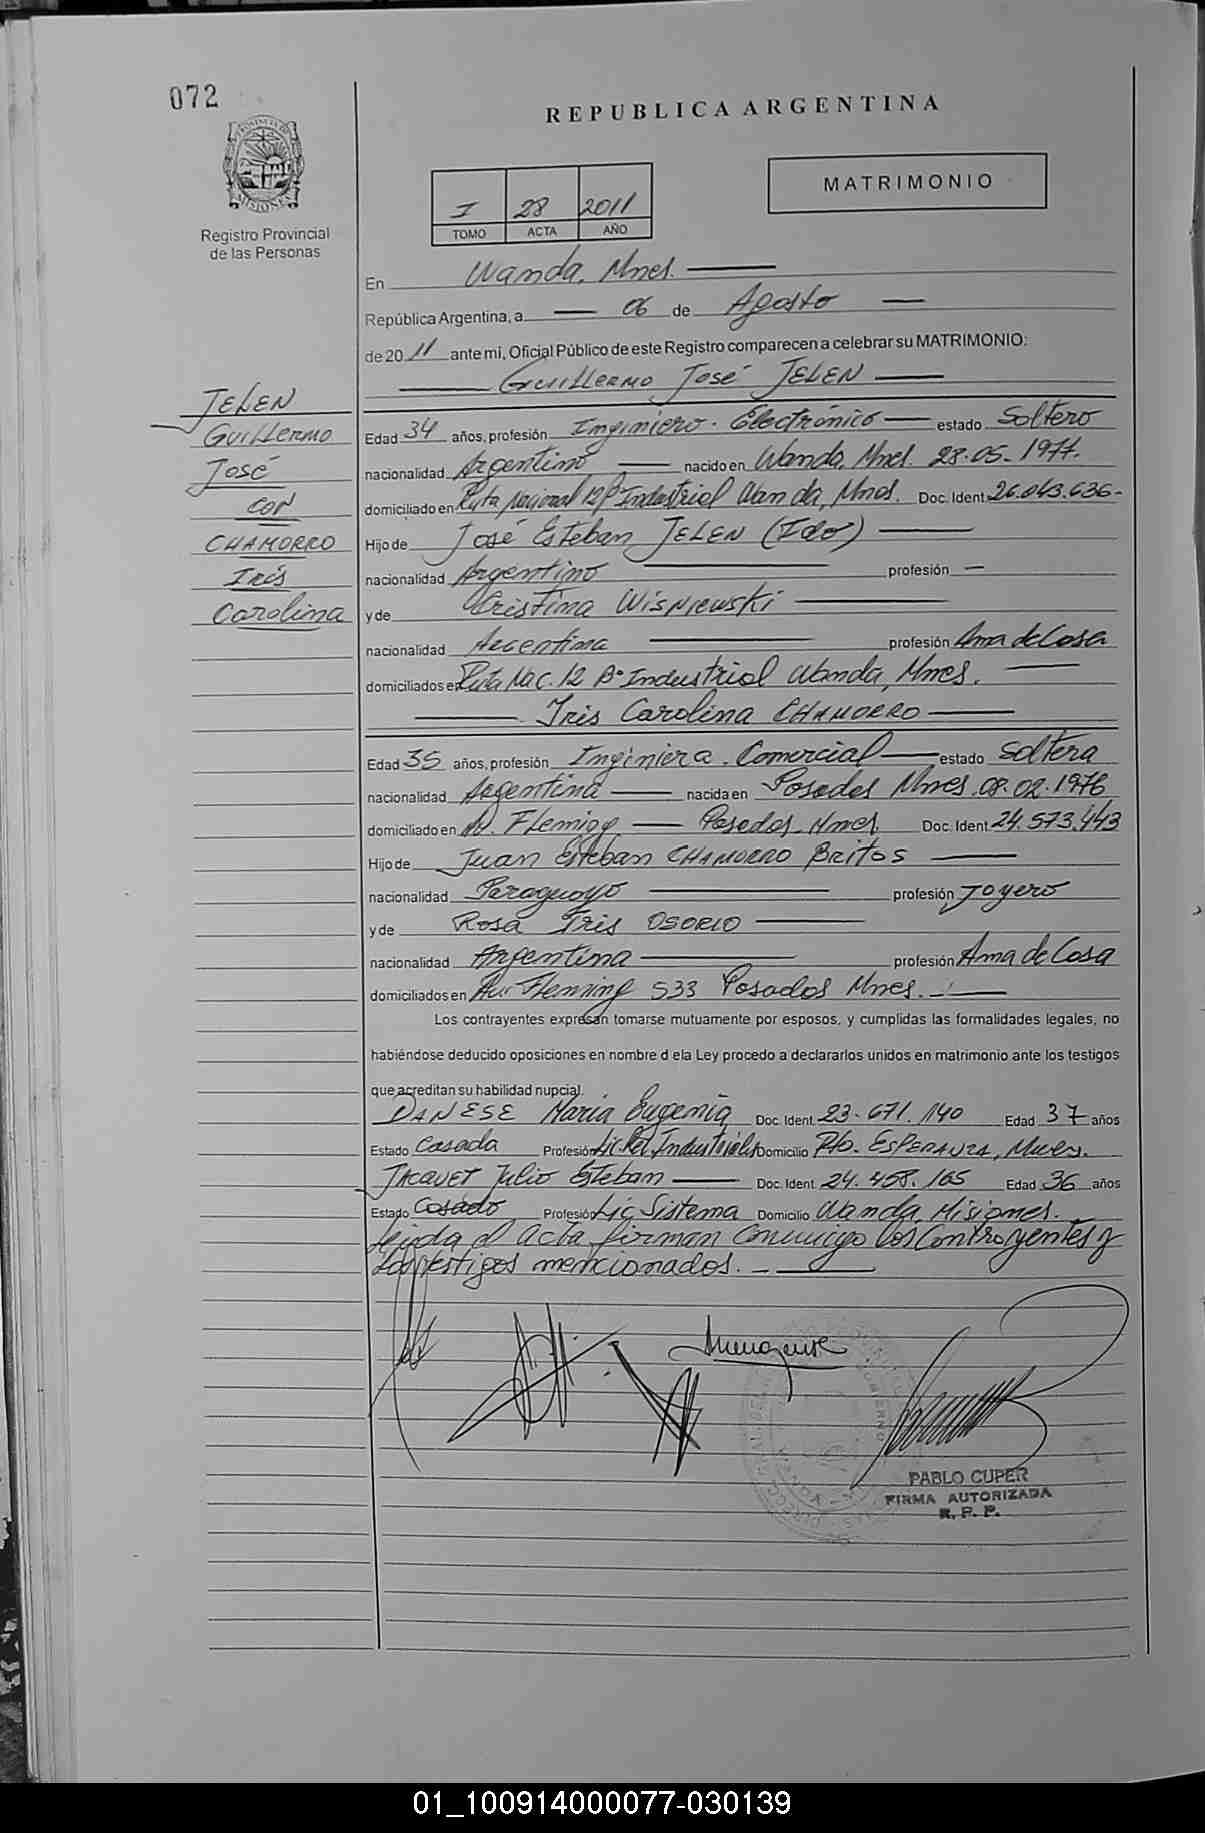 072
REPUBLICA ARGENTINA
PROVINCIA DE
MISIONES
Registro Provincial
de las Personas
I 28 2011
TOMO ACTA AÑO
MATRIMONIO
En Wanda, Mnes.
República Argentina, a 06 de Agosto
de 2011 ante mi, Oficial Público de este Registro comparecen a celebrar su MATRIMONIO:
Guillermo José JELEN
JELEN
Guillermo
José
con
CHAMORRO
Iris
Carolina
Edad 34 años, profesión Inginiero. Electrónico estado Soltero
nacionalidad Argentino nacido en Wanda, Mnes. 28.05.1977.
domiciliado en Ruta Nacional 12 Bº Industrial Wanda, Mnes. Doc. Ident 26.043.636-
Hijo de José Esteban JELEN (Fdo)
nacionalidad Argentino profesión —
y de Cristina Wisniewski
nacionalidad Argentina profesión Ama de Casa
domiciliados en Ruta Nac. 12 Bº Industrial Wanda, Mnes.
Iris Carolina CHAMORRO
Edad 35 años, profesión Inginiera. Comercial estado Soltera
nacionalidad Argentina nacida en Posadas Mnes. 08.02.1976
domiciliado en Av. Fleming Posadas, Mnes. Doc. Ident 24.573.443
Hijo de Juan Esteban CHAMORRO Britos
nacionalidad Paraguayo profesión Joyero
y de Rosa Iris OSORIO
nacionalidad Argentina profesión Ama de Casa
domiciliados en Av. Fleming 533 Posadas Mnes.
Los contrayentes expresan tomarse mutuamente por esposos, y cumplidas las formalidades legales, no
habiéndose deducido oposiciones en nombre d ela Ley procedo a declararlos unidos en matrimonio ante los testigos
que acreditan su habilidad nupcial.
DANESE María Eugenia Doc. Ident. 23.671.140 Edad 37 años
Estado Casada Profesión Lic. Rel. Industriales Domicilio Pto. ESPERANZA, Mnes.
JACQUET Julio Esteban Doc. Ident. 24.458.165 Edad 36 años
Estado Casado Profesión Lic. Sistema Domicilio Wanda, Misiones.
leida el acta firman conmigo los contrayentes y
los testigos mencionados.
PABLO CUPER
FIRMA AUTORIZADA
R. P. P.
01_100914000077-030139